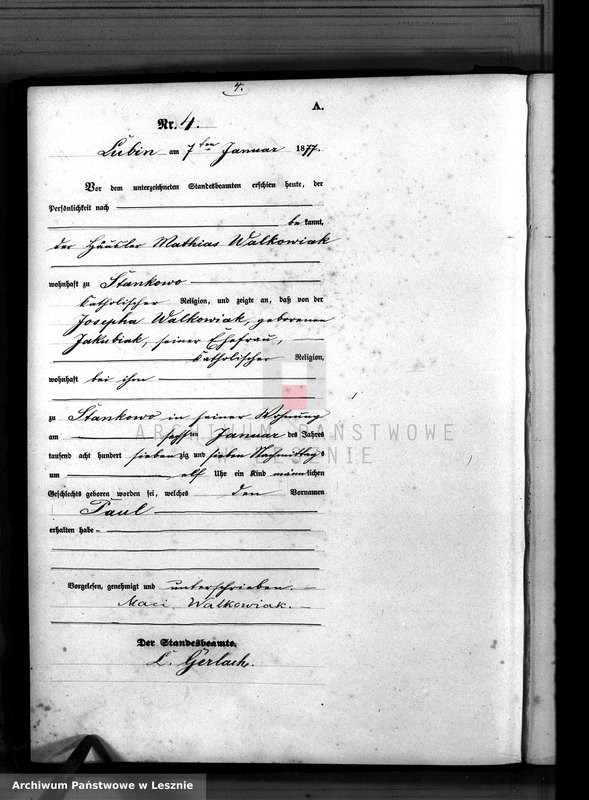 4.
A.
Nr. 4.
Lubin am 7ten Januar 1877.
Vor dem unterzeichneten Standesbeamten erschien heute, der
Persönlichkeit nach
bekannt,
der Häusler Mathias Walkowiak
wohnhaft zu Stankowo
katholischer Religion, und zeigte an, daß von der
Josepha Walkowiak, geborenen
Jakubiak, seiner Ehefrau,
katholischer Religion,
wohnhaft bei ihm
zu Stankowo in seiner Wohnung
am sechsten Januar des Jahres
tausend acht hundert siebenzig und sieben Nachmittags
um elf Uhr ein Kind männlichen
Geschlechts geboren worden sei, welches den Vornamen
Paul
erhalten habe
Vorgelesen, genehmigt und unterschrieben.
Maci Walkowiak.
Der Standesbeamte.
L. Gerlach.
ARCHIWUM PAŃSTWOWE
W LESZNIE
Archiwum Państwowe w Lesznie